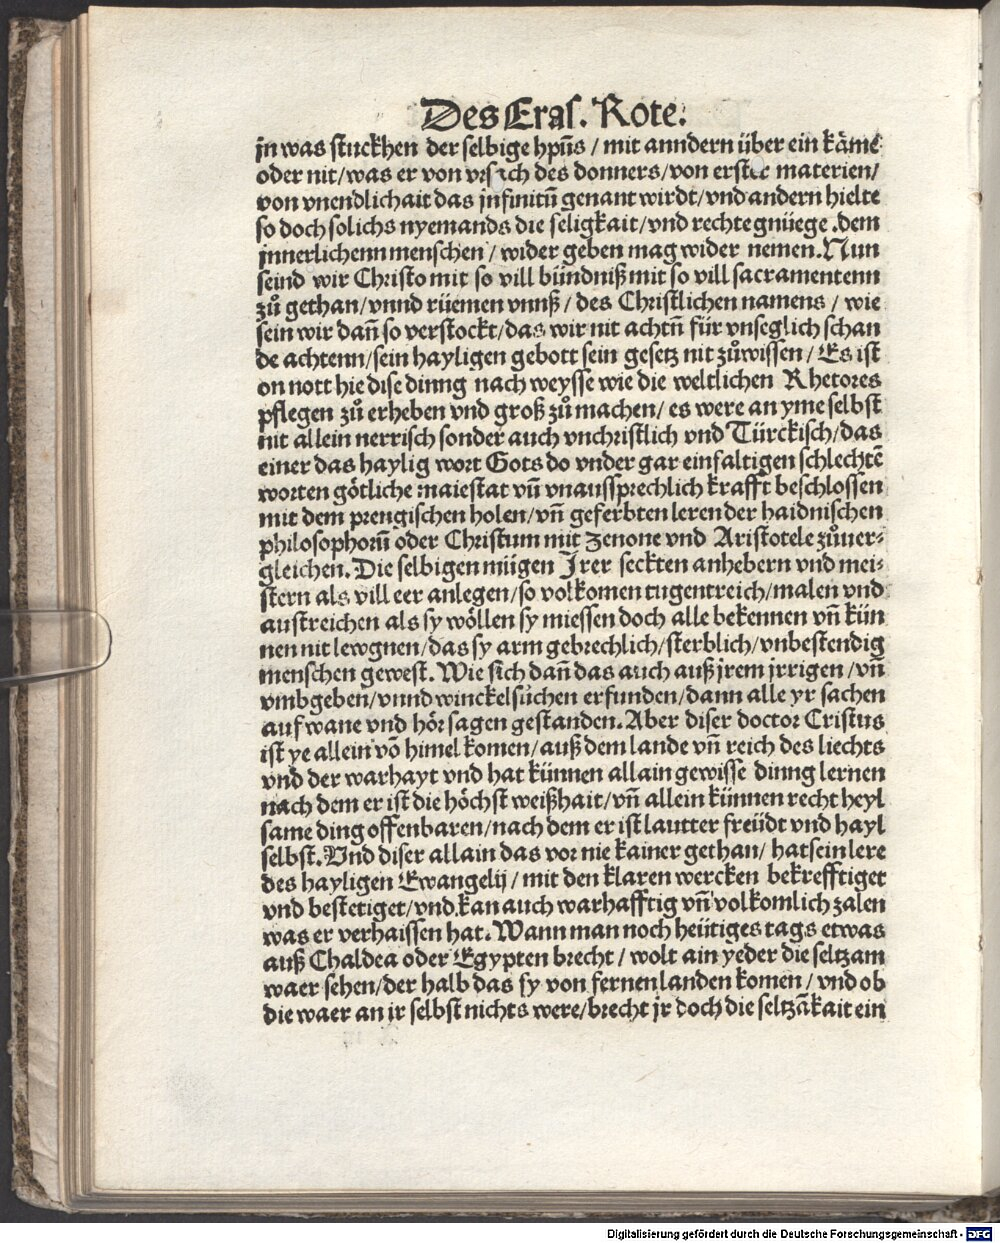 Des Eras. Rote.
jn was stuckhen der selbige hpūs / mit anndern über ein kåme
oder nit/was er von vrsach des donners/von erster materien/
von vnendlichait das jnfinitū genant wirdt/vnd andern hielte
so doch solichs nyemands die seligkait/vnd rechte gnüege .dem
jnnerlichenn menschen / wider geben mag wider nemen. Nun
seind wir Christo mit so vill bündniß mit so vill sacramentenn
zů gethan/vnnd rüemen vnnß / des Christlichen namens / wie
sein wir dañ so verstockt/das wir nit achtñ für vnseglich schan
de achtenn/sein hayligen gebott sein gesetz nit zůwissen / Es ist
on nott hie dise dinng nach weysse wie die weltlichen Rhetores
pflegen zů erheben vnd groß zů machen/ es were an yme selbst
nit allein nerrisch sonder auch vnchristlich vnd Türckisch/das
einer das haylig wort Gots do vnder gar einfaltigen schlechtē
worten götliche maiestat vñ vnaussprechlich krafft beschlossen
mit dem prengischen holen/vñ geferbten leren der haidnischen
philosophorū oder Christum mit Zenone vnd Aristotele zůuer⸗
gleichen. Die selbigen mügen Jrer seckten anhebern vnd mei⸗
stern als vill eer anlegen/so volkomen tugentreich/malen vnd
austreichen als sy wöllen sy miessen doch alle bekennen vñ kün
nen nit lewgnen/das sy arm gebrechlich/sterblich/vnbestendig
menschen gewest. Wie sich dañ das auch auß jrem jrrigen /vñ
vmbgeben/vnnd winckelsüchen erfunden/dann alle yr sachen
auf wane vnd hörsagen gestanden. Aber diser doctor Cristus
ist ye allein vō himel komen/auß dem lande vñ reich des liechts
vnd der warhayt vnd hat künnen allain gewisse dinng lernen
nach dem er ist die höchst weißhait/vñ allein künnen recht heyl
same ding offenbaren/nach dem er ist lautter freüdt vnd hayl
selbst. Vnd diser allain das vor nie kainer gethan/ hat sein lere
des hayligen Ewangelij / mit den klaren wercken bekrefftiget
vnd bestetiget/vnd.kan auch warhafftig vñ volkomlich zalen
was er verhaissen hat. Wann man noch heütiges tags etwas
auß Chaldea oder Egypten brecht / wolt ain yeder die seltzam
waer sehen/der halb das sy von fernen landen komen / vnd ob
die waer an jr selbst nichts were/brecht jr doch die seltzākait ein
Digitalisierung gefördert durch die Deutsche Forschungsgemeinschaft - DFG